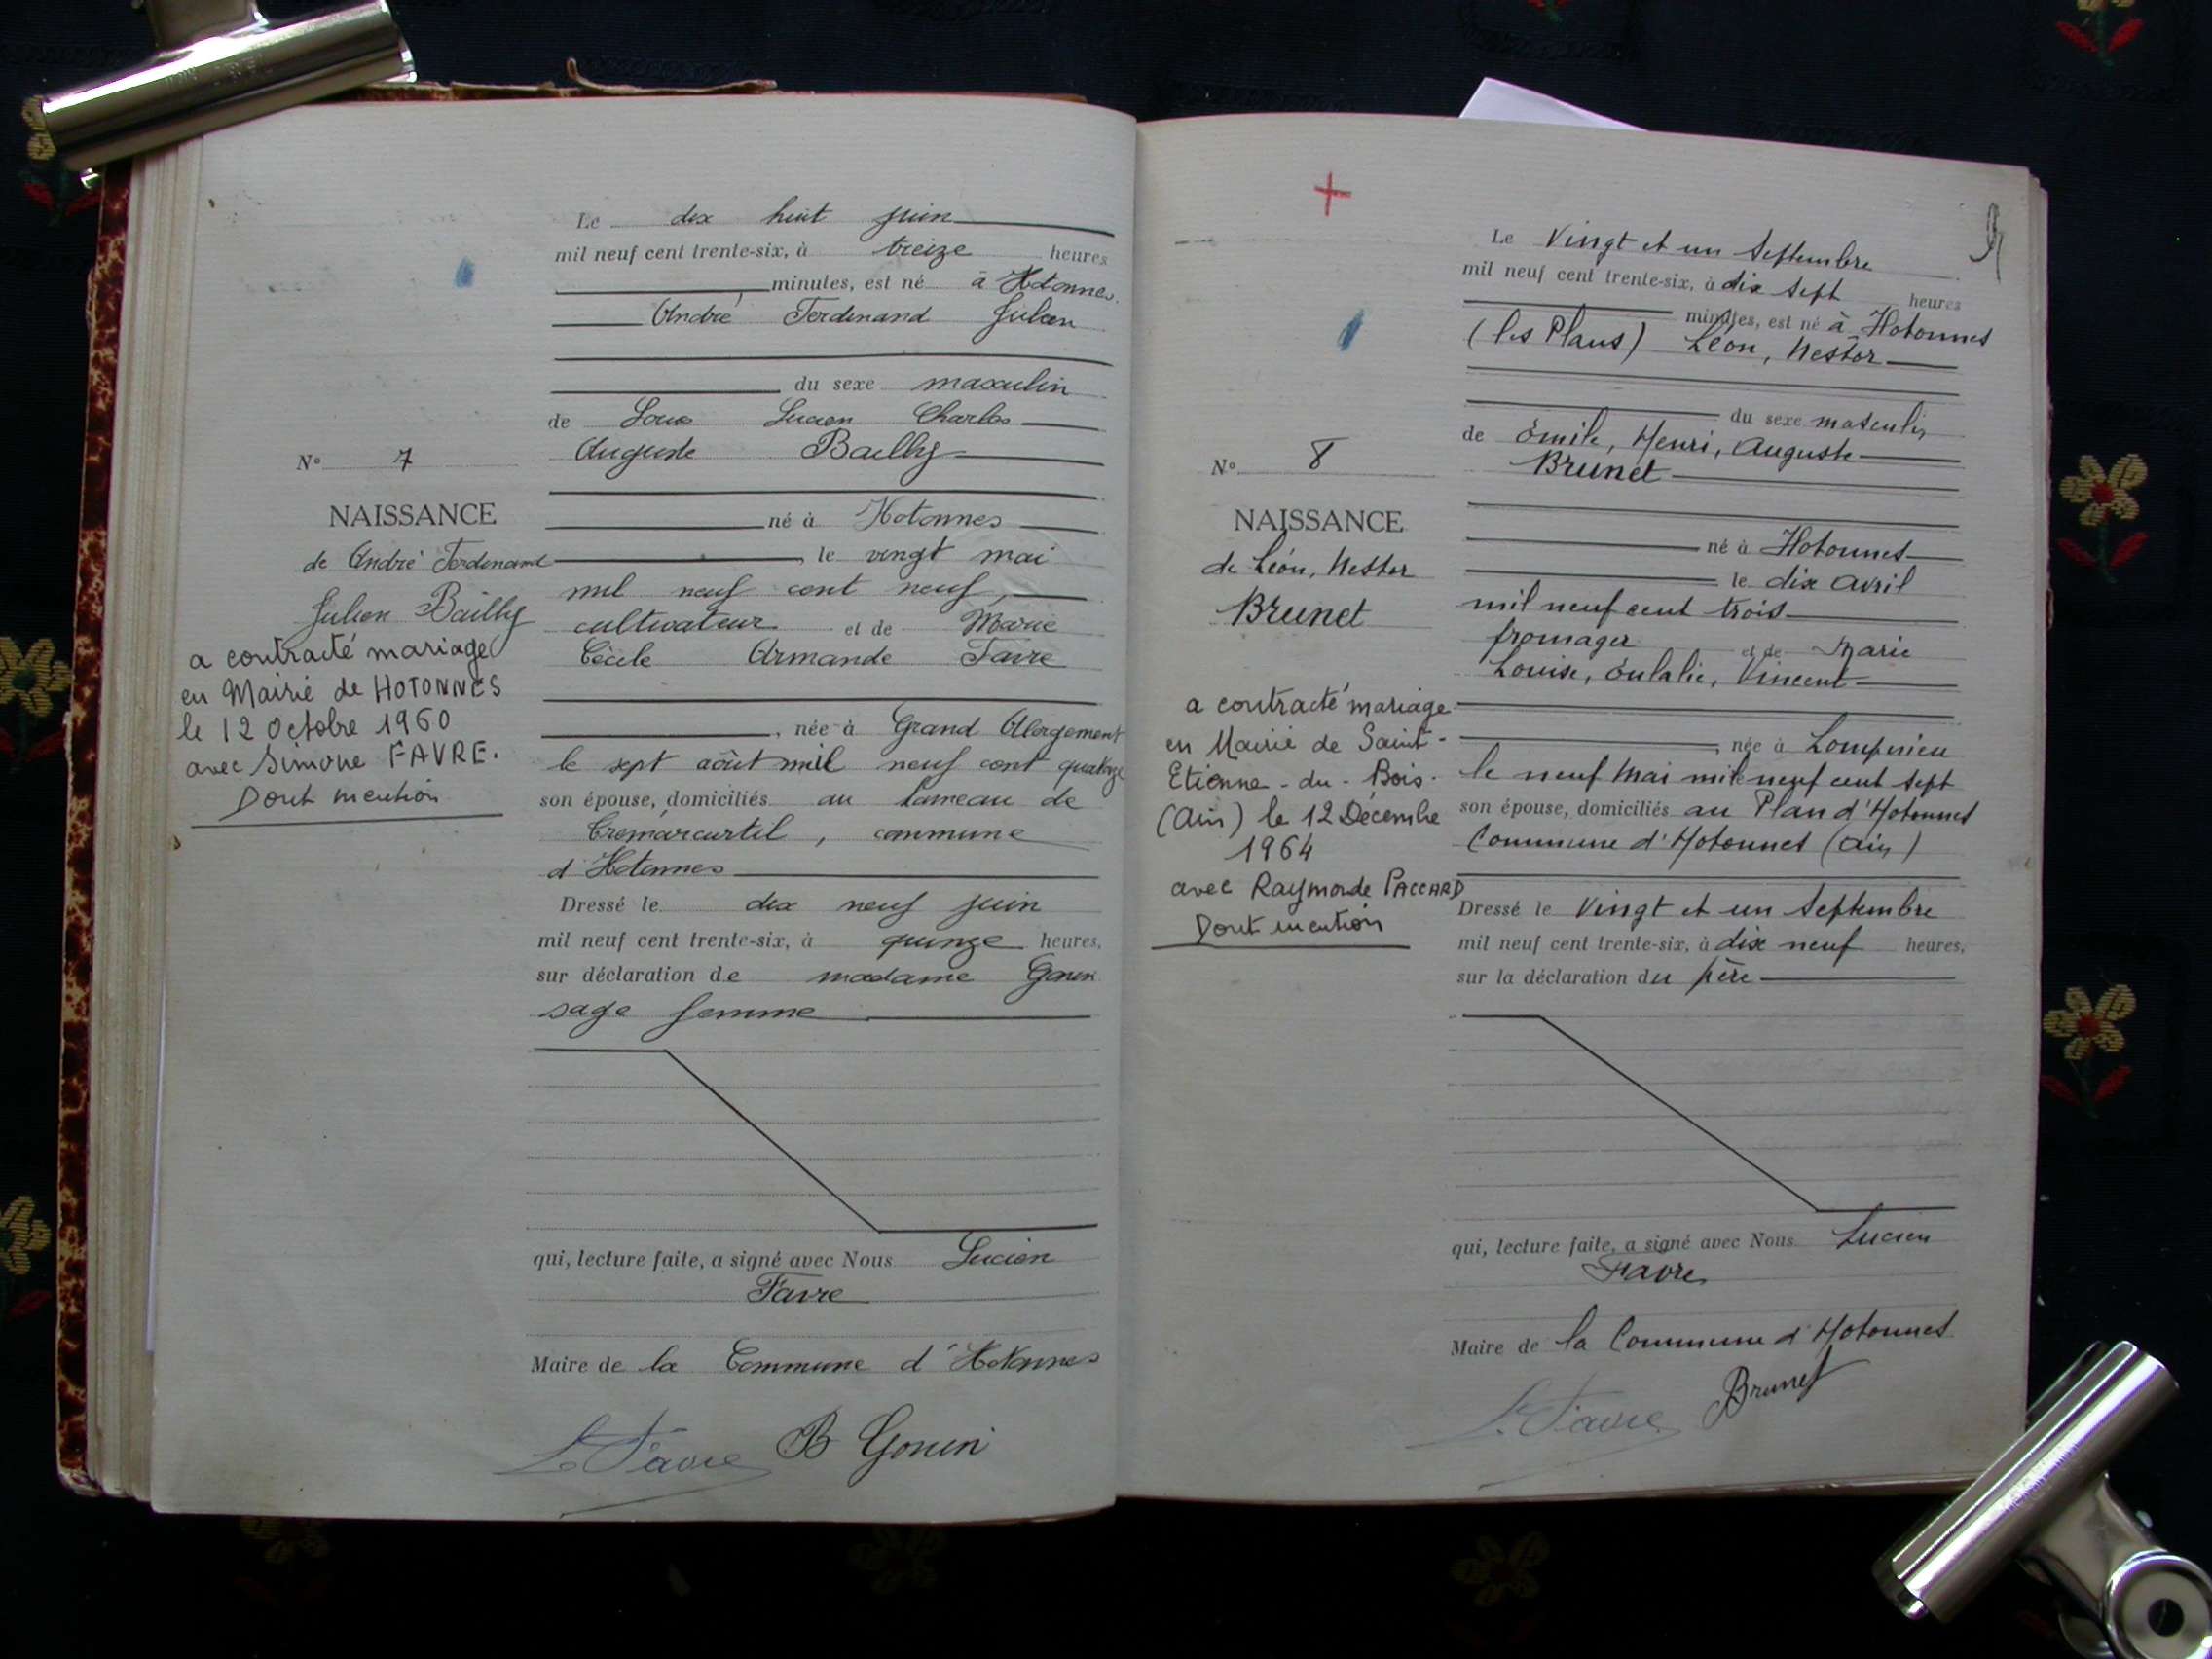 Le dix huit juin
mil neuf cent trente-six, à treize heures
minutes, est né à Hotonnes.
André Ferdinand Julien
du sexe masculin
de Louis Lucien Charles
Auguste Bailly
né à Hotonnes
, le vingt mai
mil neuf cent neuf,
cultivateur et de Marie
Cécile Armande Favre
, née à Grand Abergement
le sept août mil neuf cent quatorze
son épouse, domiciliés au hameau de
, commune
d'Hotonnes
Dressé le dix neuf juin
mil neuf cent trente-six, à quinze heures,
sur déclaration de madame Gonin
sage femme
qui, lecture faite, a signé avec Nous Lucien
Favre
Maire de la Commune d'Hotonnes
L. Favre B Gonin
N° 7
NAISSANCE
de André Ferdinand
Julien Bailly
a contracté mariage
en Mairie de HOTONNES
le 12 Octobre 1960
avec Simone FAVRE.
Dont mention
Le Vingt et un Septembre
mil neuf cent trente-six, à dix sept heures
minutes, est né à Hotonnes
(les Plans) Léon, Nestor
du sexe masculin
de Émile, Henri, Auguste
Brunet
né à Hotonnes
le dix Avril
mil neuf cent trois
fromager et de Marie
Louise, Eulalie, Vincent
, née à Lompnieu
le neuf Mai mil neuf cent sept
son épouse, domiciliés au Plan d'Hotonnes
Commune d'Hotonnes (Ain)
Dressé le Vingt et un Septembre
mil neuf cent trente-six, à dix neuf heures,
sur la déclaration du père
qui, lecture faite, a signé avec Nous Lucien
Favre
Maire de la Commune d'Hotonnes
L. Favre Brunet
N° 8
NAISSANCE
de Léon, Nestor
Brunet
a contracté mariage
en Mairie de Saint-
Etienne-du-Bois-
(Ain) le 12 Décembre
1964
avec Raymonde PACCARD
Dont mention